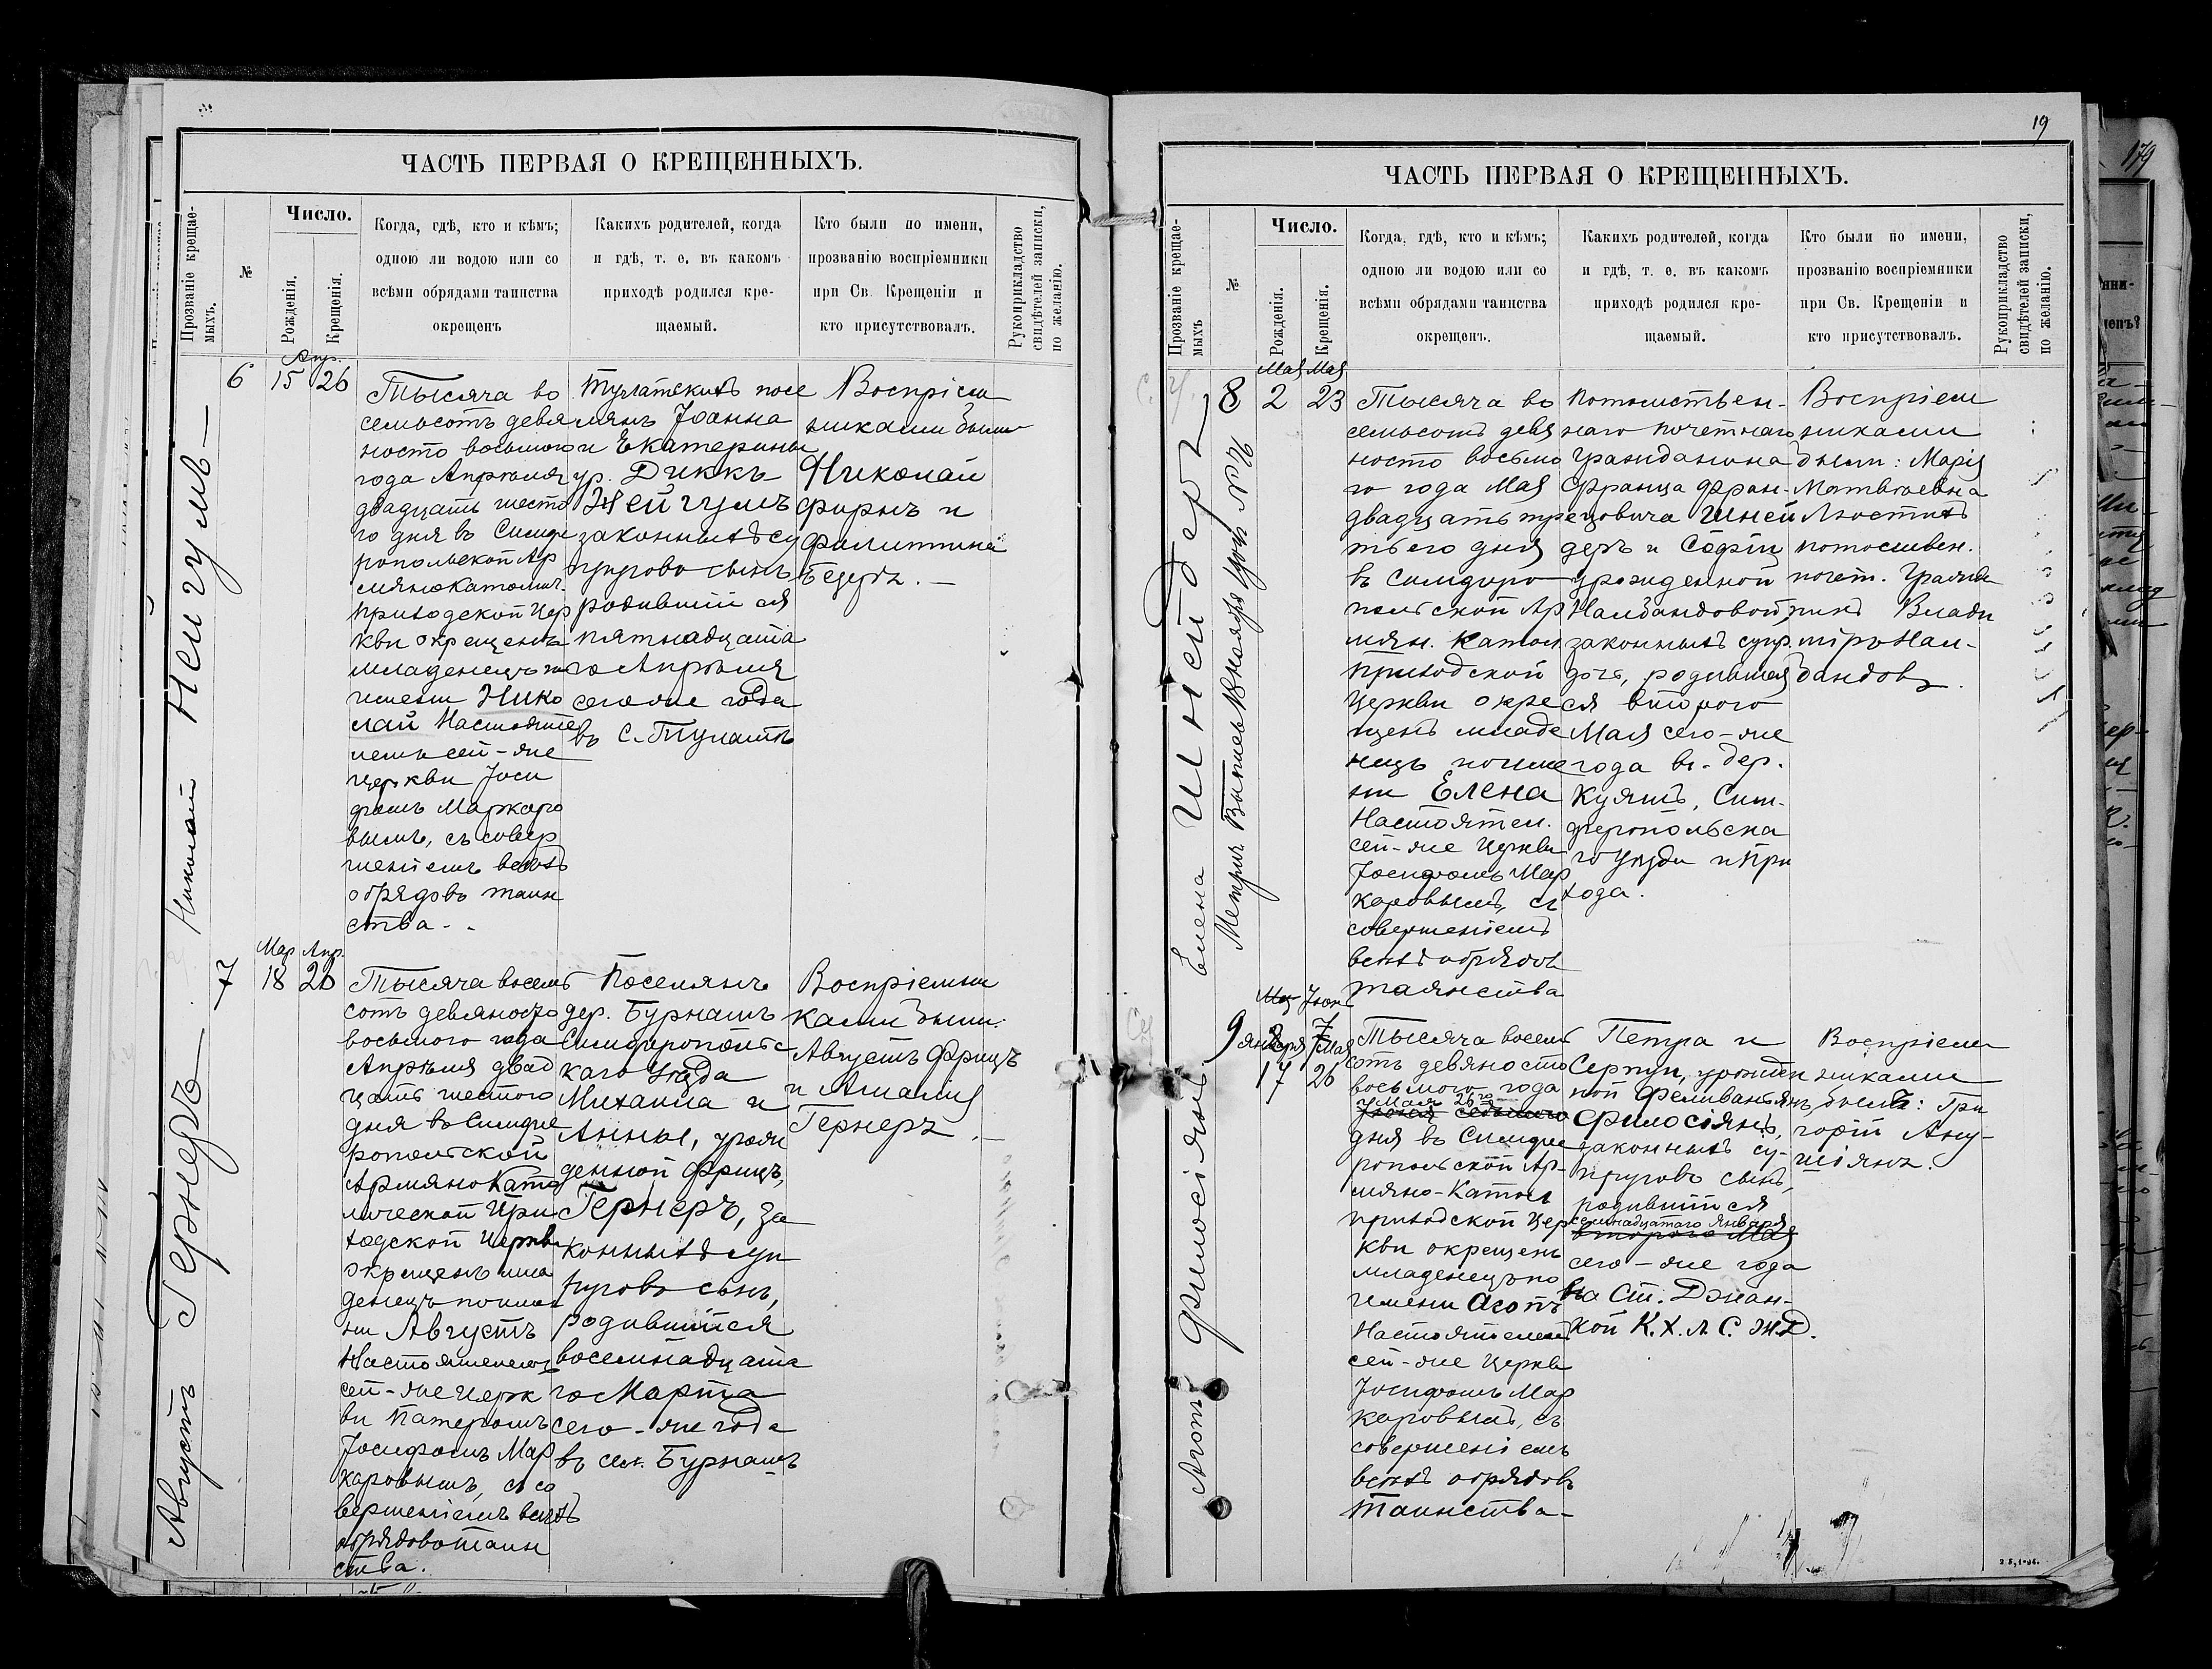 ЧАСТЬ ПЕРВАЯ О КРЕЩЕННЫХЪ.
Прозваніе крещае-
мыхъ.
№
Число.
Рожденія.
Крещенія.
Когда, гдѣ, кто и кѣмъ;
одною ли водою или со
всѣми обрядами таинства
окрещенъ
Какихъ родителей, когда
и гдѣ, т. е. въ какомъ
приходѣ родился кре-
щаемый.
Кто были по имени,
прозванію воспріемники
при Св. Крещеніи и
кто присутствовалъ.
Рукоприкладство
свидѣтелей записки,
по желанію.
Николай Нейгумъ —
6
Апр.
15 26
Тысяча во
семьсотъ девя
носто восьмого
года Апрѣля
двадцать шесто
го дня въ Симфе
ропольской Ар
мяно Католич.
приходской Цер
кви окрещенъ
младенецъ по
имени Нико
лай Настояте
лемъ сей-же
церкви Јоси
фомъ Маркаро
вымъ, съ совер
шеніемъ всѣхъ
обрядовъ таин
ства. -
посе
лянъ Јоанна
и Екатерины
ур. Диккъ
Нейгумъ
законныхъ су
пруговъ сынъ
родившійся
пятнадцата
го Апрѣля
сего же года
въ С.
Воспріем
никами были
Николай
Фирнъ и
Августъ Гернеръ —
7
Мар Апр.
18 26
Тысяча восемь
сотъ девяносто
восьмого года
Апрѣля двад
цать шестого
дня въ Симфе
ропольской
Армяно Като
лической При
ходской Церкви
окрещенъ мла
денецъ по име
ни Августъ
Настоятелемъ
сей-же Церк
ви Патеромъ
Јосифомъ Мар
каровымъ, съ со
вершеніемъ всѣхъ
обрядовъ таин
ства.
Поселянъ
дер. Бурнашъ
Симферопольс
каго Уѣзда
Михаила и
Анны, урож
денной Фрицъ,
Гернеръ, за
конныхъ суп
руговъ сынъ,
родившійся
восемнадцата
го Марта
сего-же года
въ сел. Бурнашъ
Воспріемни
ками были:
Августъ Фрицъ
и Амалія
Гернеръ. —
19
ЧАСТЬ ПЕРВАЯ О КРЕЩЕННЫХЪ.
Прозваніе крещае-
мыхъ
№
Число.
Рожденія.
Крещенія.
Когда, гдѣ, кто и кѣмъ;
одною ли водою или со
всѣми обрядами таинства
окрещенъ.
Какихъ родителей, когда
и гдѣ, т. е. въ какомъ
приходѣ родился кре-
щаемый.
Кто были по имени,
прозванію воспріемники
при Св. Крещеніи и
кто присутствовалъ.
Рукоприкладство
свидѣтелей записки,
по желанію.
Елена Шнейдеръ
8
Мая Мая
2 23
Тысяча во
семьсотъ девя
носто восьмо
го года Мая
двадцать тре
тьего дня
въ Симферо
польской Ар
мян. Катол.
приходской
Церкви окре
щенъ младе
нецъ по име
ни Елена
Настоятел.
сей-же Церкви
Јосифомъ Мар
каровымъ, съ
совершеніемъ
всѣхъ обрядовъ
таинства
Потомствен-
наго почетнаго
Гражданина
Франца Фран-
цовича Шней
деръ и Софіи
урожденной
Налбандовой,
законныхъ супр.
дочь, родившая
ся второго
Мая сего-же
года въ дер.
Куятъ, Сим-
феропольска
го Уѣзда и При
хода.
Воспріем
никами
были: Марія
Матвѣевна
потомствен.
почет. Гражда
нинъ Влади
міръ Нал-
бандовъ.
Агопъ Филосіянъ
9
Мая Іюн
2 7
января Мая
17 26
Тысяча восемь
сотъ девяносто
восьмого года
Мая 26го
Іюня седьмого
дня въ Симфе
ропольской Ар-
мяно-Катол
приходской Цер
кви окрещенъ
младенецъ по
имени Агопъ
Настоятелемъ
сей-же Церкви
Јосифомъ Мар
каровымъ, съ
совершеніемъ
всѣхъ обрядовъ
Таинства-
Петра и
Серпуи, урожден
ной
Филосіянъ,
законныхъ су-
пруговъ сынъ,
родившійся
семнадцатаго Января
второго Мая
сего-же года
на Ст. Джан-
кой К. Х. Л. С. Ж.Д.
Воспріем
никами
были: Гри
горій Ану-
шіянъ.
2 8, 1-96.
179